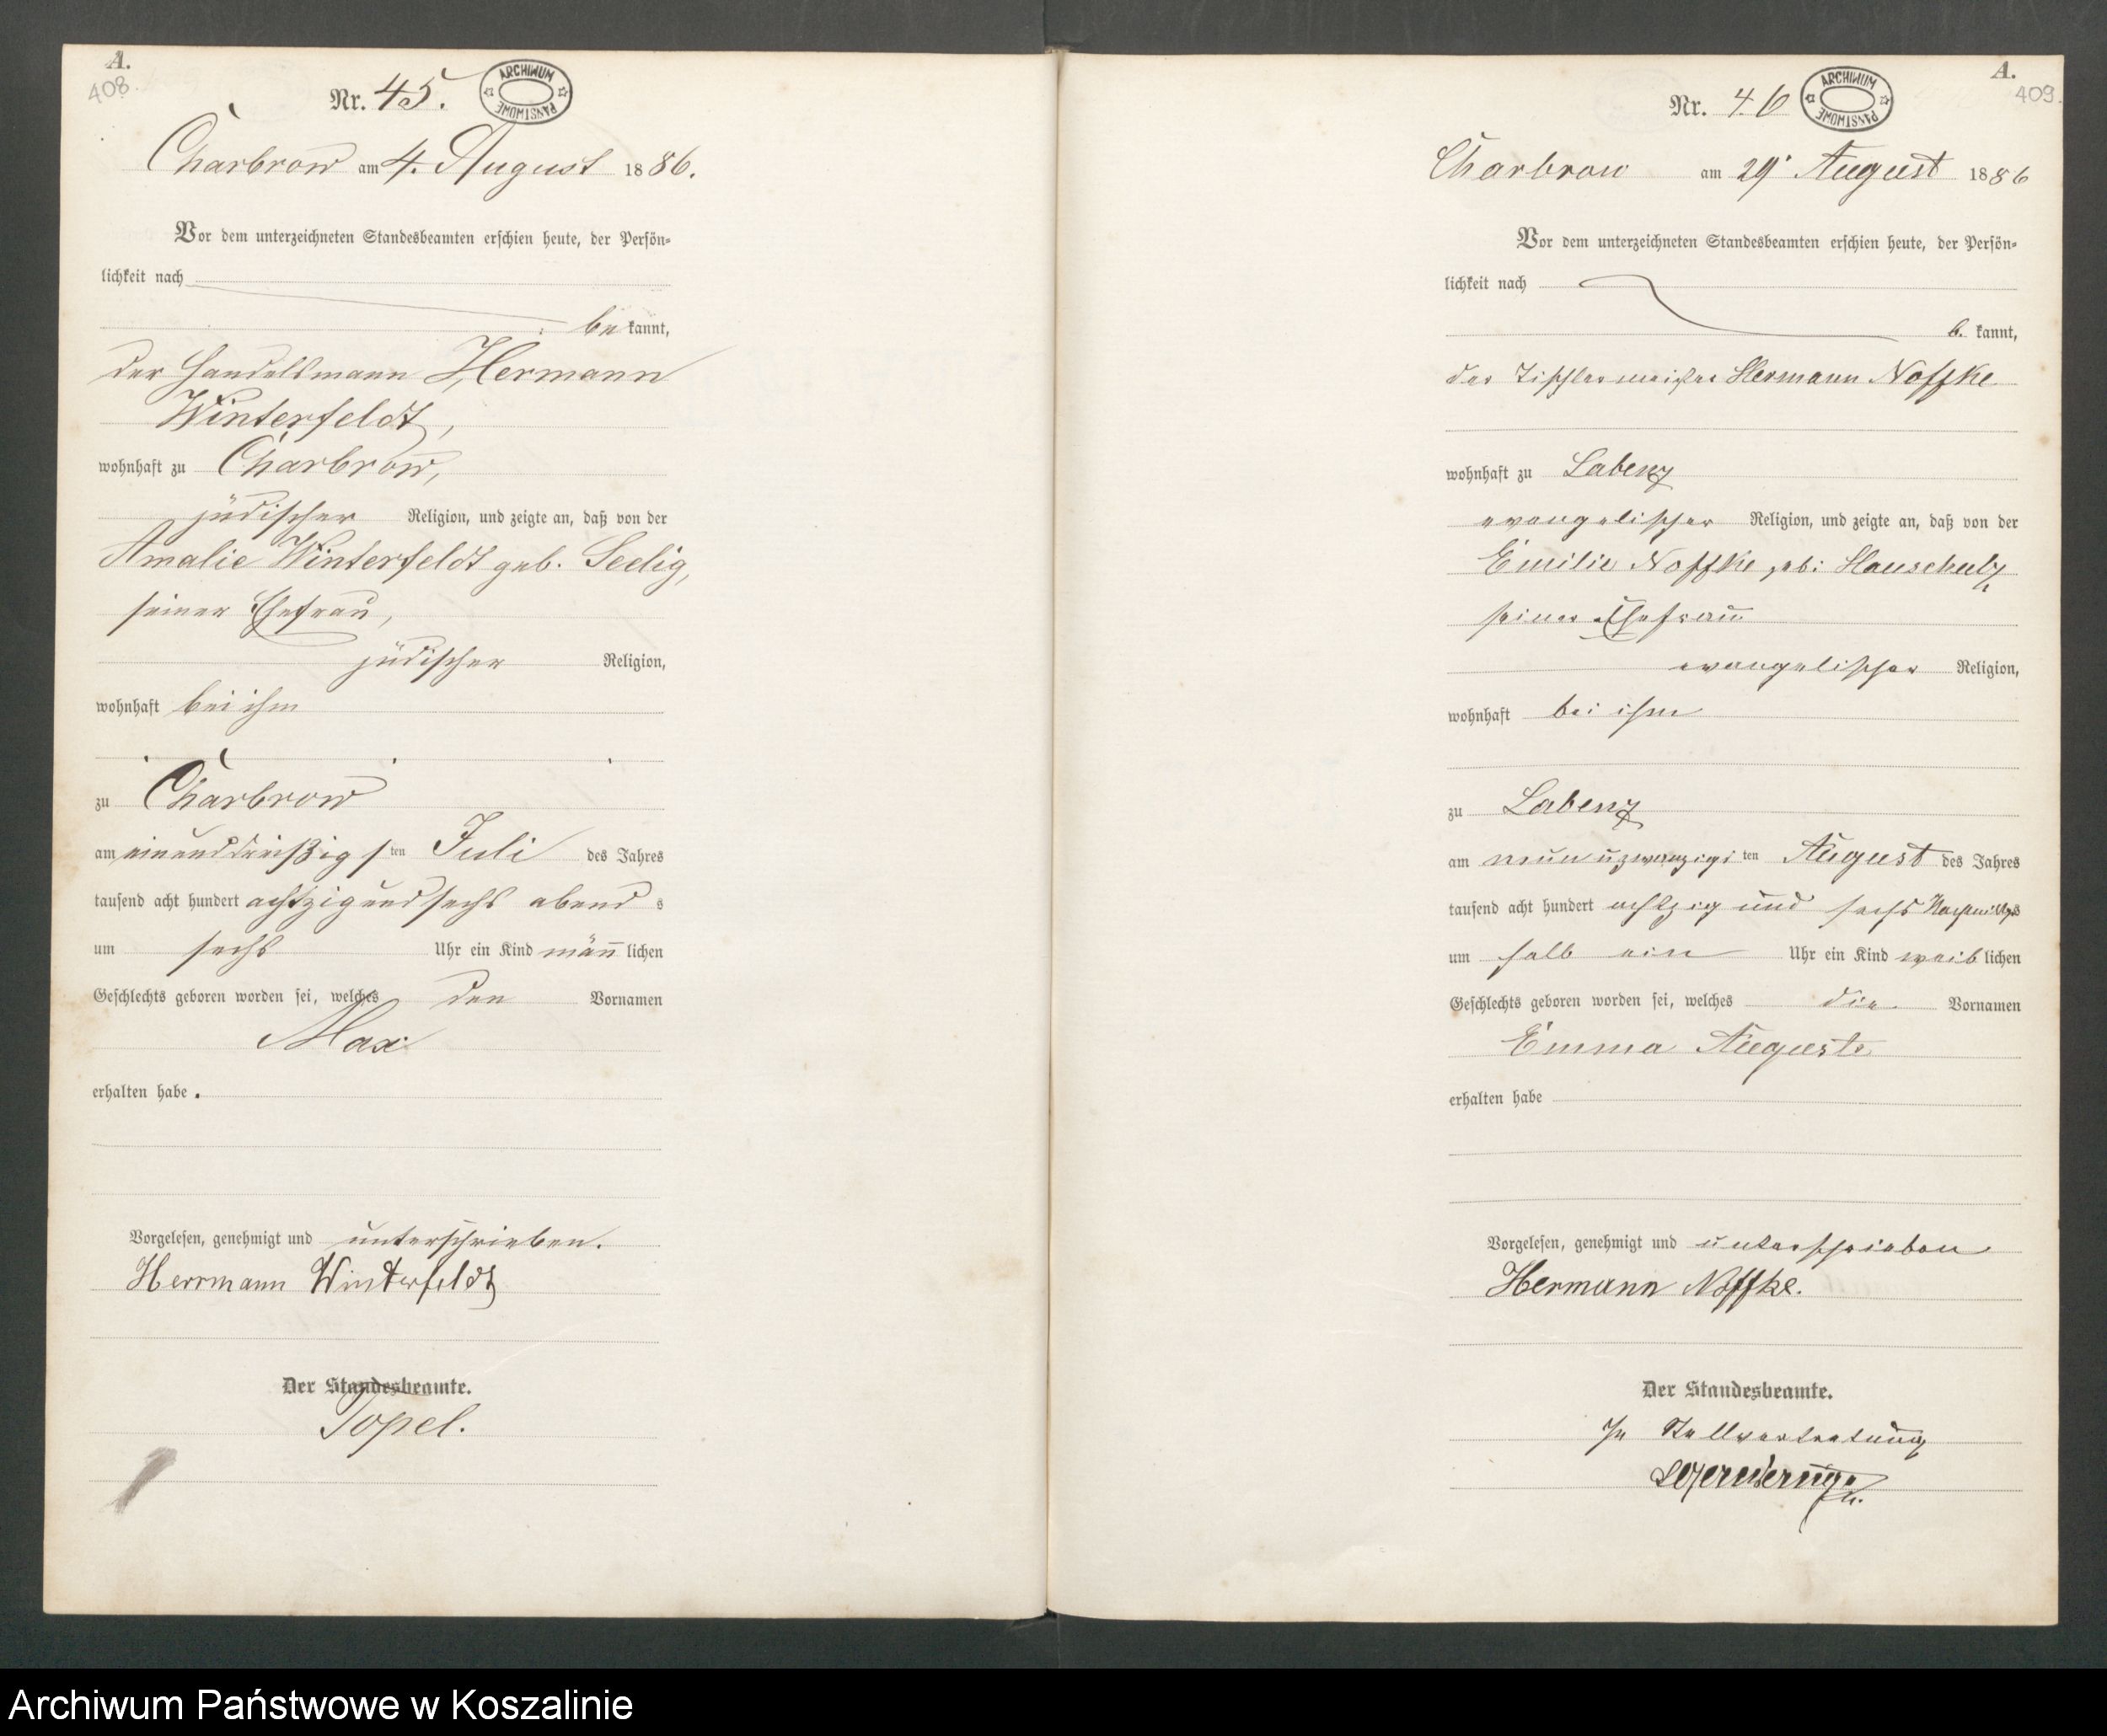 A.
408
Nr. 45.
ARCHIWUM PAŃSTWOWE
Charbrow am 4. August 1886.
Vor dem unterzeichneten Standesbeamten erschien heute, der Persön-
lichkeit nach
bekannt,
der Handelsmann Hermann
Winterfeldt,
wohnhaft zu Charbrow,
jüdischer Religion, und zeigte an, daß von der
Amalie Winterfeldt geb. Seelig,
seiner Ehefrau,
jüdischer Religion,
wohnhaft bei ihm
zu Charbrow
am einunddreißigsten Juli des Jahres
tausend acht hundert achtzig und sechs abends
um sechs Uhr ein Kind männlichen
Geschlechts geboren worden sei, welches den Vornamen
Max
erhalten habe.
Vorgelesen, genehmigt und unterschrieben.
Herrmann Winterfeldt
Der Standesbeamte.
Topel.
A.
409.
Nr. 46
ARCHIWUM PAŃSTWOWE
Charbrow am 29. August 1886
Vor dem unterzeichneten Standesbeamten erschien heute, der Persön-
lichkeit nach
b. kannt,
der Tischlermeister Hermann Noffke
wohnhaft zu Labenz
evangelischer Religion, und zeigte an, daß von der
Emilie Noffke geb: Hauschulz
seiner Ehefrau
evangelischer Religion,
wohnhaft bei ihm
zu Labenz
am neun u zwanzigsten August des Jahres
tausend acht hundert achtzig und sechs Nachmittgs
um halb ein Uhr ein Kind weiblichen
Geschlechts geboren worden sei, welches die Vornamen
Emma Auguste
erhalten habe
Vorgelesen, genehmigt und unterschrieben
Hermann Noffke.
Der Standesbeamte.
In Stellvertretung
Archiwum Państwowe w Koszalinie